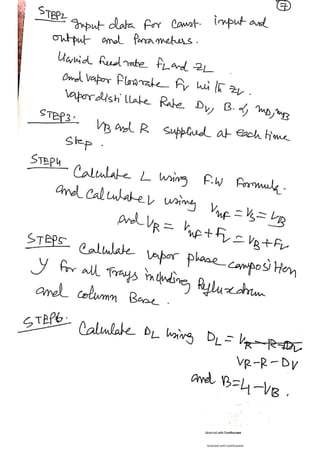 7
STEP2 Input data for const. input and
output and Parameters.
Liquid feed rate FL and ZL
and vapor flowrate Fv with Zv.
Vapor distillate Rate Dv, B. α, MD, MB
STEP3. VB and R supplied at each time
Step.
STEP4 Calculate L using F.W Formula.
and Calculate V using VNF = VS = VB
and VR = VNF + FV = VB + FV
STEP5 Calculate vapor phase composition
y for all Trays including Reflux drum
and column Base.
STEP6. Calculate DL using DL = VR-R-DV
VR-R-DV
and B = L1 - VB.
Scanned with CamScanner
Scanned with CamScanner